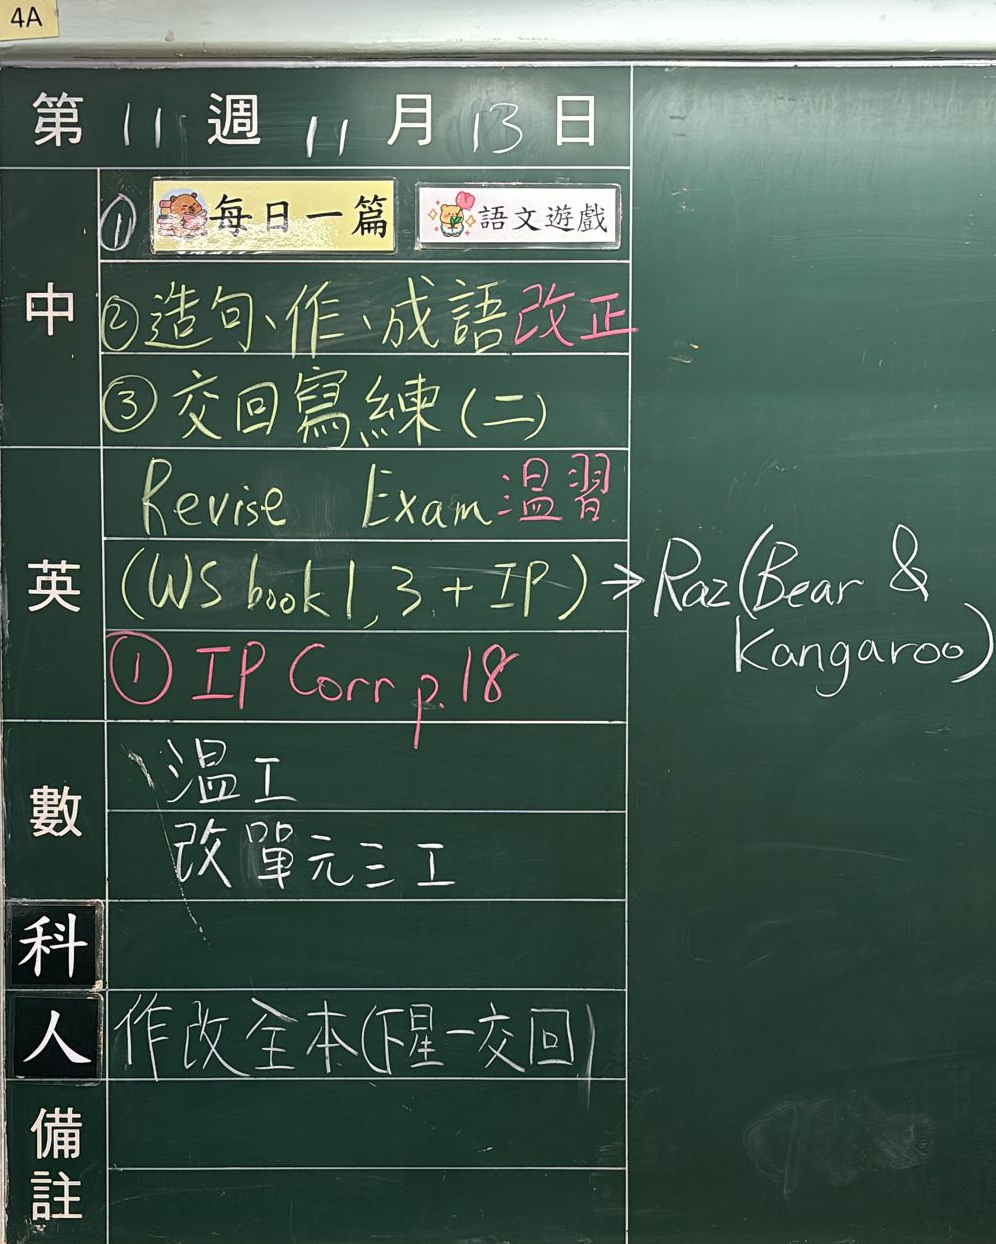 4A
第 11 週 11 月 13 日
中
① 每日一篇 語文遊戲
②造句、作、成語改正
③交回寫練(二)
英
Revise Exam 温習
(WS book 1, 3 + IP) → Raz (Bear &
Kangaroo)
① IP Corr p.18
數
温工
改單元三工
科
人
作改全本(下星一交回)
備註